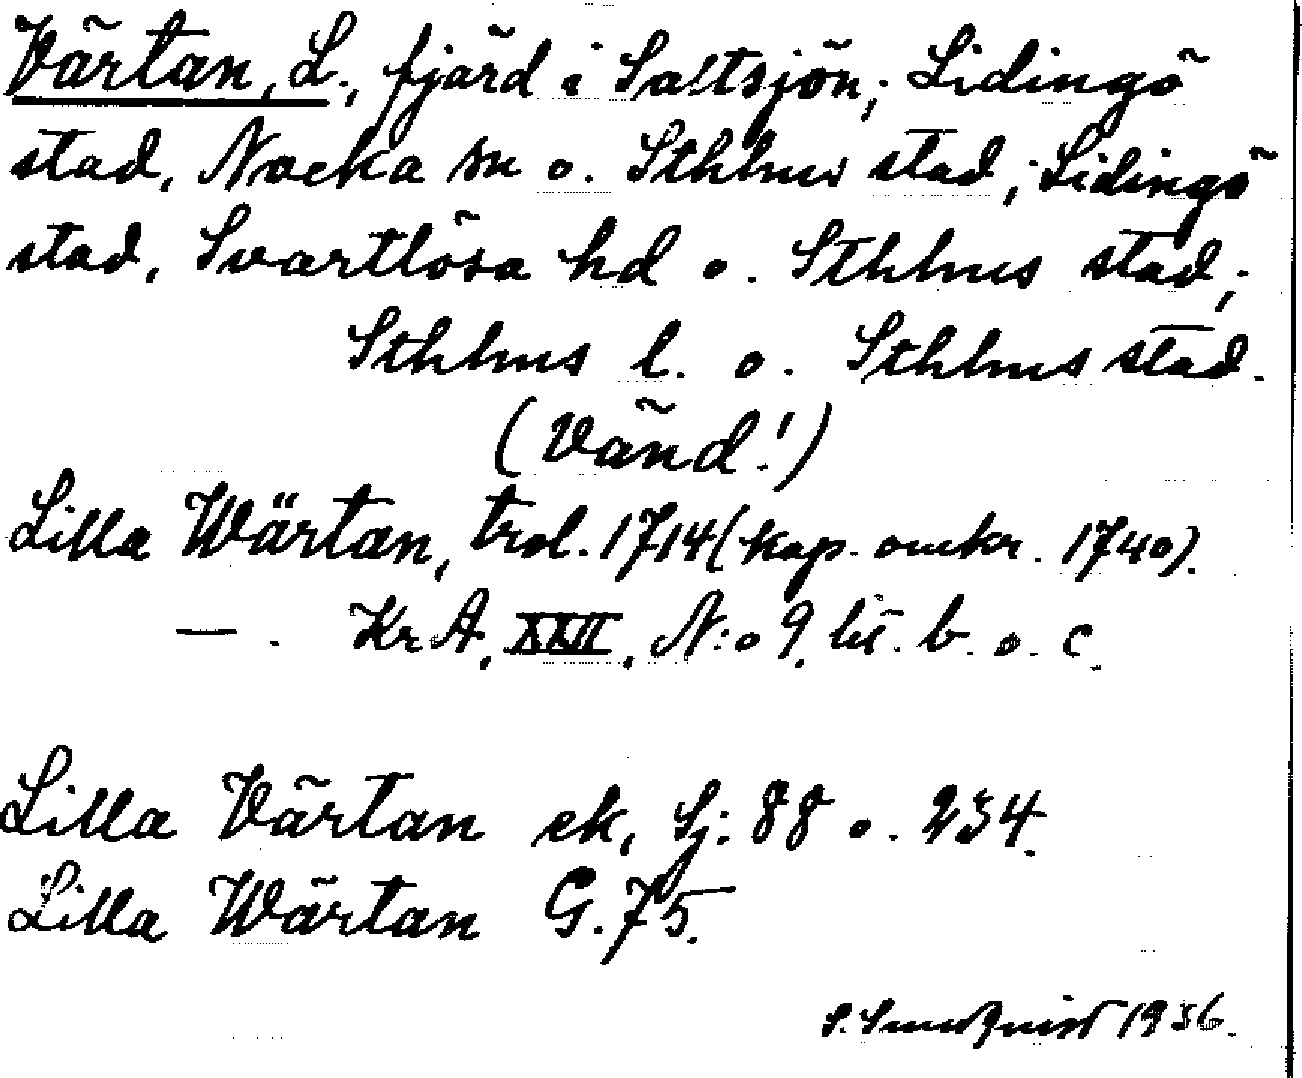 Värtan, L., fjärd i Saltsjön; Lidingö
stad, Nacka sn o. Sthlms stad; Lidingö
stad, Svartlösa hd o. Sthlms stad;
Sthlms l. o. Sthlms stad.
(Vänd!)
Lilla Wärtan, trol. 1714 (kop. omkr. 1740).
— . KrA, XXII, N:o 9, lit. b. o. c.
Lilla Värtan ek, Sj: 88 o. 234.
Lilla Wärtan G. 75.
S. Sundquist 1936.